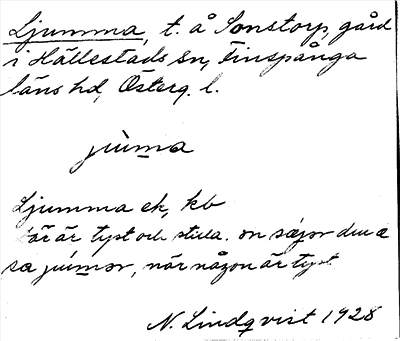 Ljumma, t. å Sonstorp, gård
i Hällestads sn, Finspånga
läns hd, Österg. l.
jùma
Ljumma ek, kb
är tyst och stilla. on säjər du æ
sa júmər, när någon är tyst
N. Lindqvist 1928